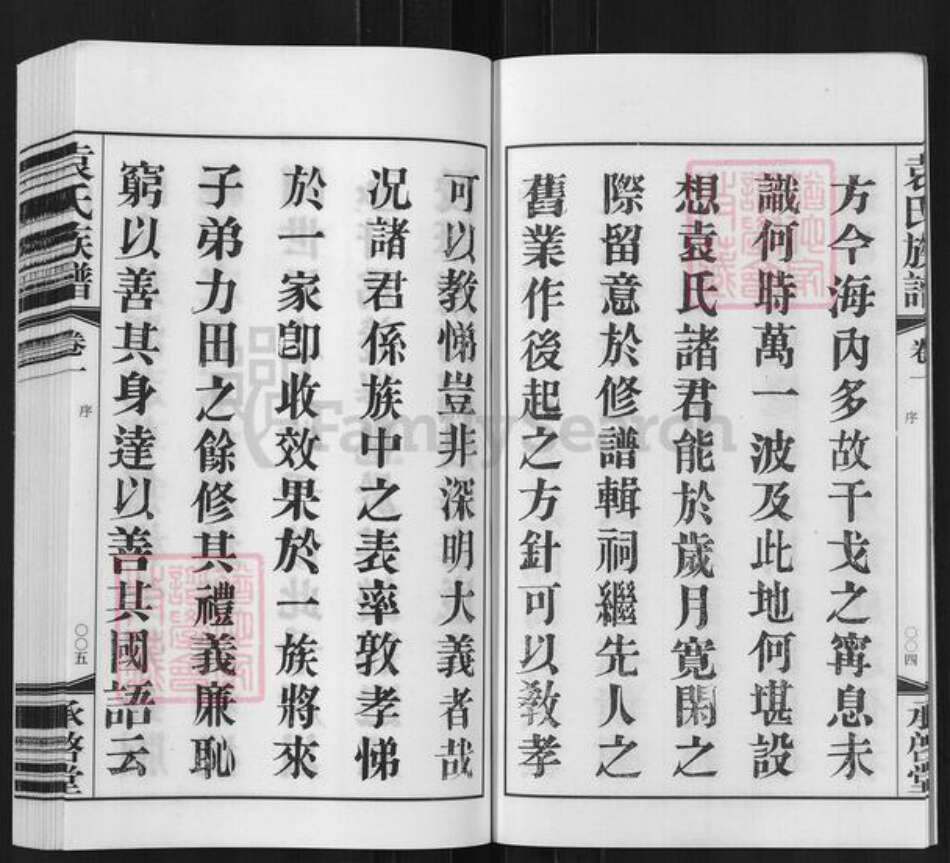 袁氏族譜
卷一
序
〇〇四
承啓堂
方今海內多故干戈之寗息未
識何時萬一波及此地何堪設
想袁氏諸君能於歲月寬閑之
際留意於修譜輯祠繼先人之
舊業作後起之方針可以教孝
可以教悌豈非深明大義者哉
況諸君係族中之表率敦孝悌
於一家卽收效果於一族將來
子弟力田之餘修其禮義廉恥
窮以善其身達以善其國語云
袁氏族譜
卷一
序
〇〇五
承啓堂
FamilySearch